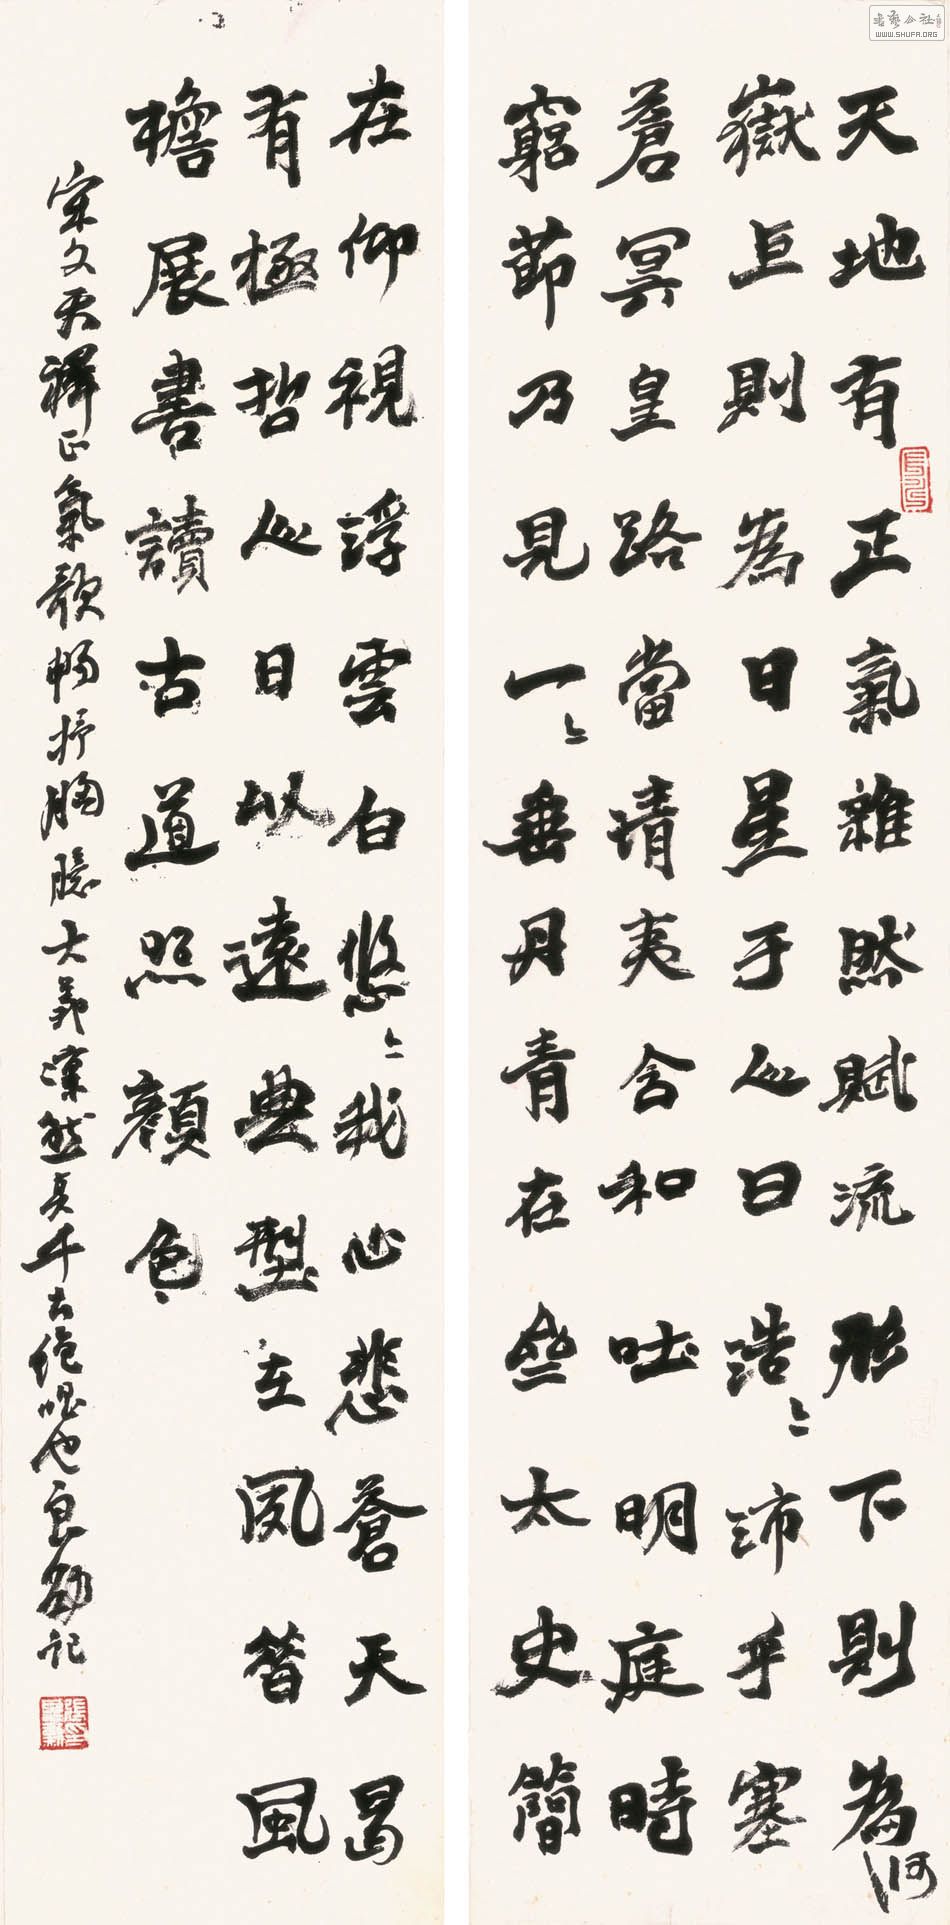 書藝公社
WWW.SHUFA.ORG
天地有正氣雜然賦流形下則為河
嶽上則為日星于人曰浩〻沛乎塞
蒼冥皇路當清夷含和吐明庭時
窮節乃見一〻垂丹青在齊太史簡
在仰視浮雲白悠〻我心悲蒼天曷
有極哲人日以遠典型在夙昔風
檐展書讀古道照顏色
宋文天祥正氣歌暢抒胸臆大義凜然真千古絕唱也良勛記